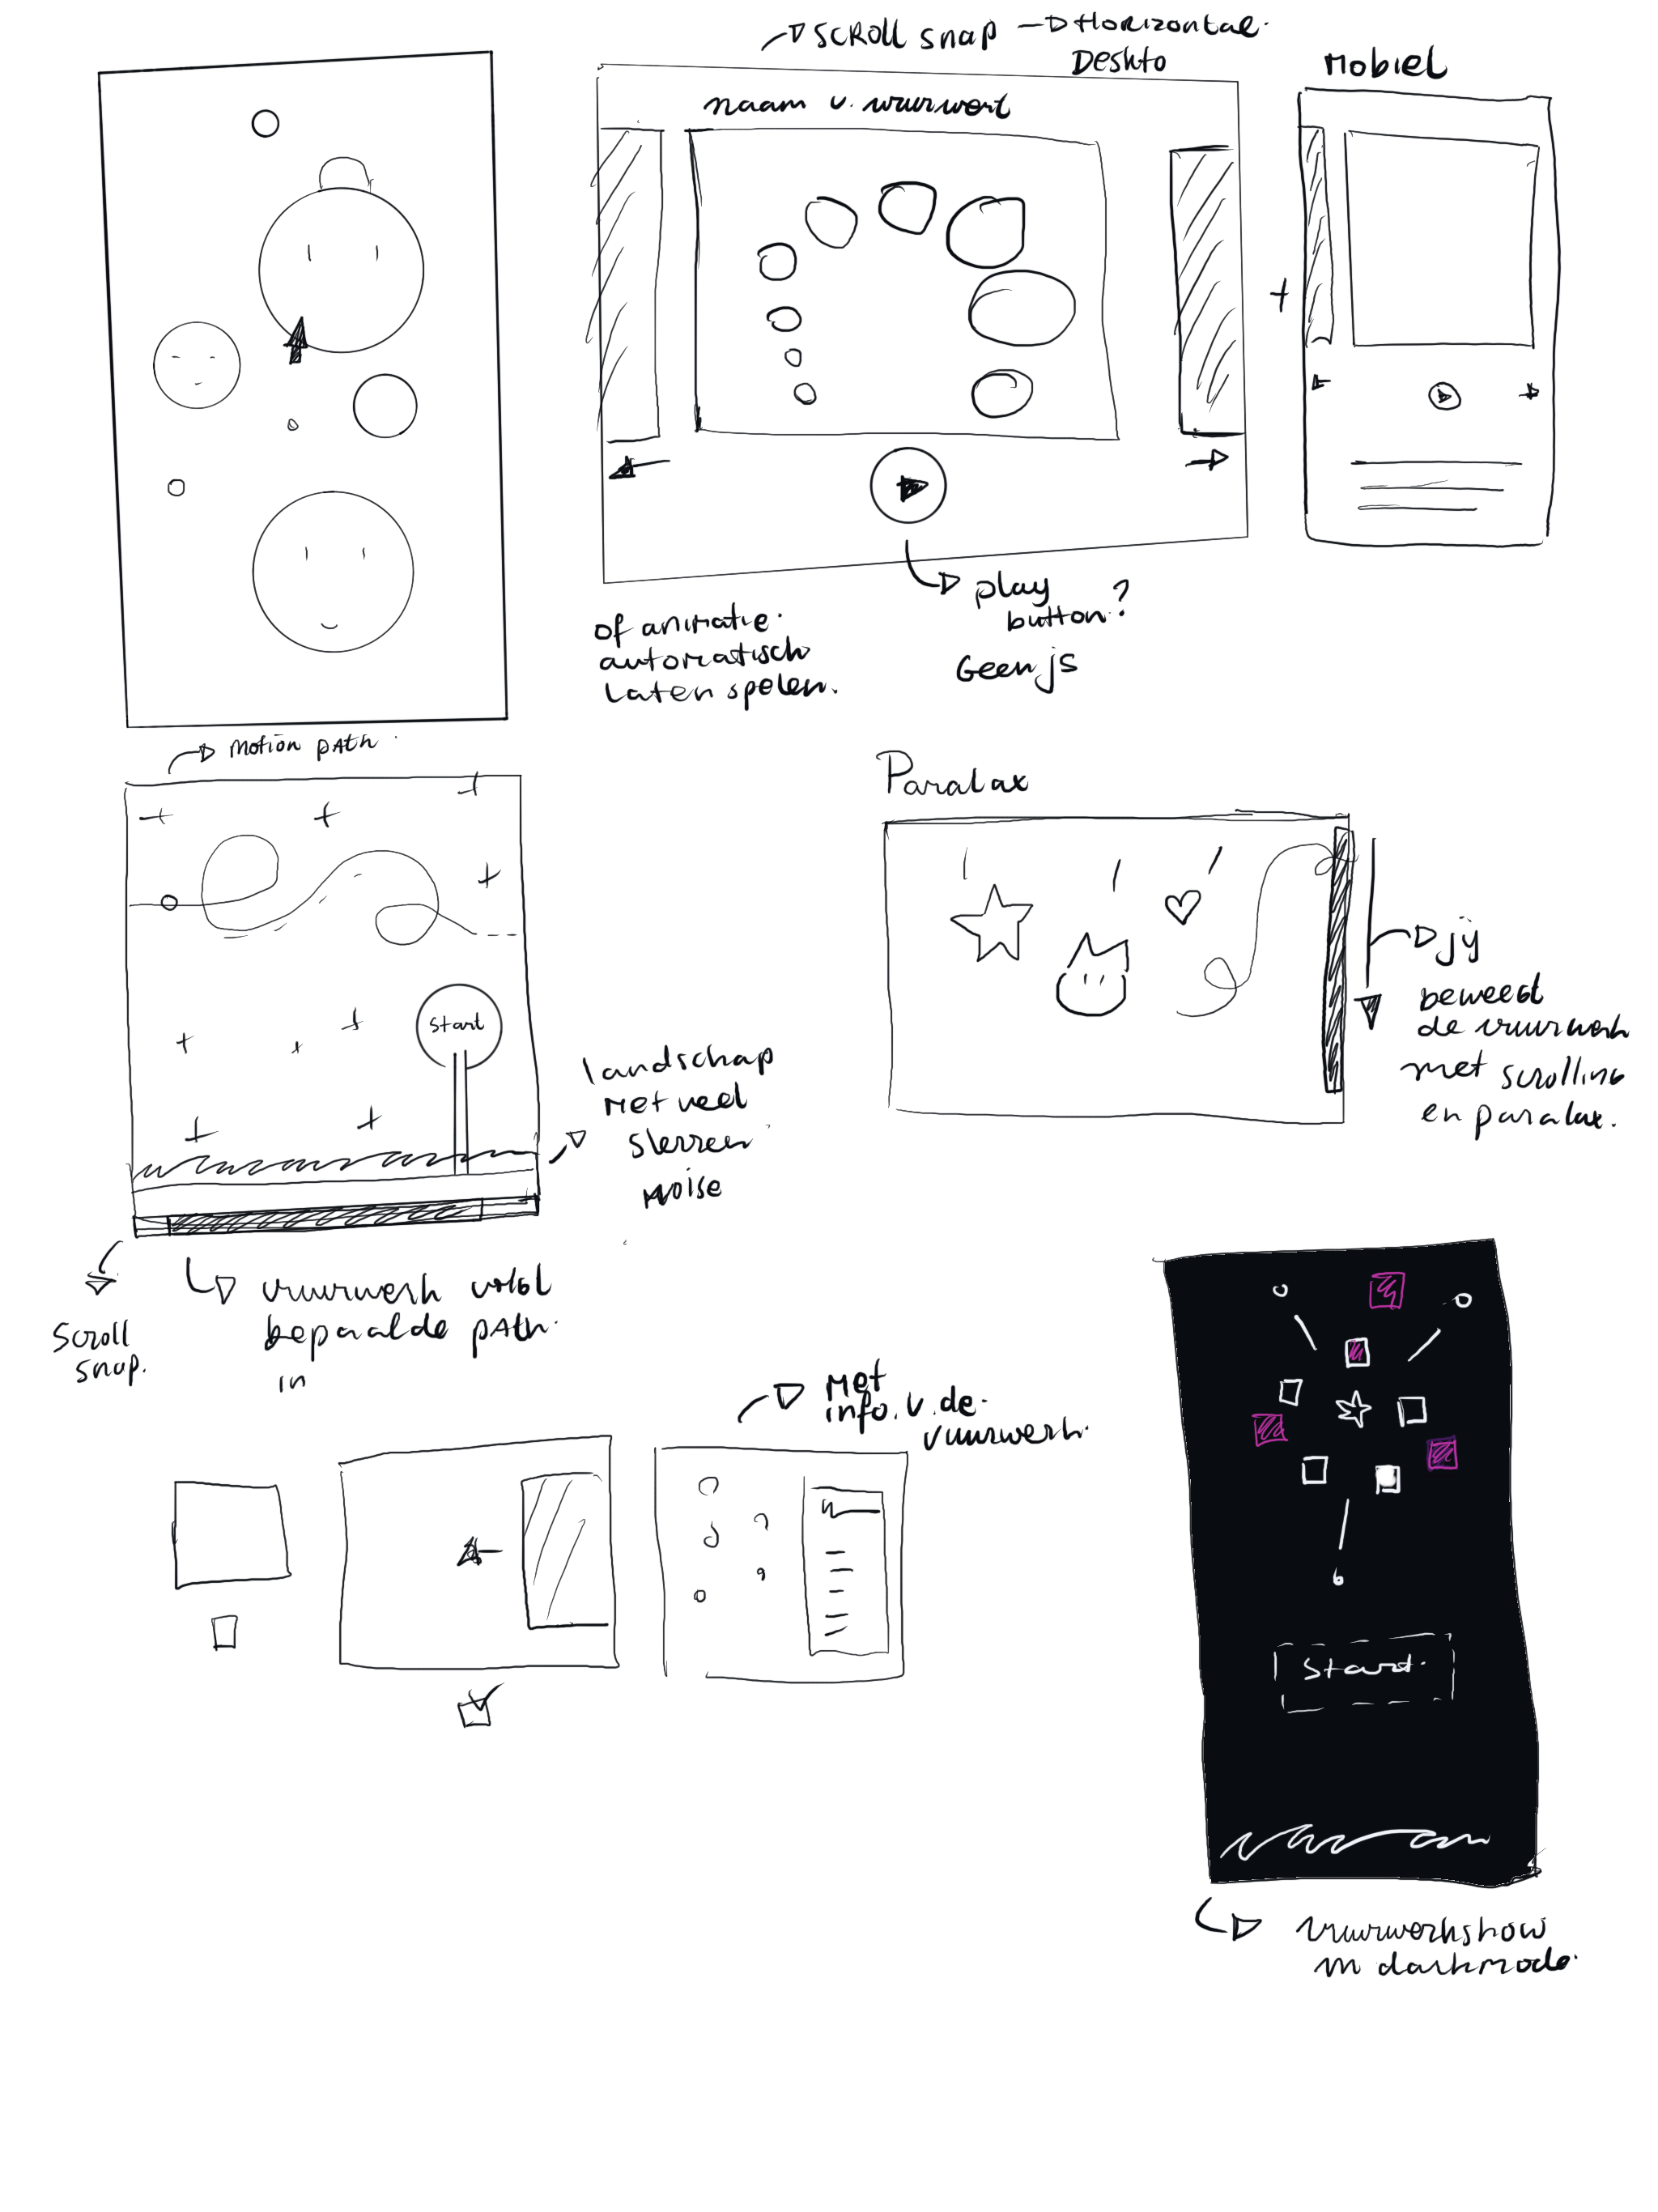 SCROLL snap → Horizontal.
Deskto
naam v. vuurwerk
Mobiel
play
button?
Geen js
of animatie
automatisch
laten spelen.
Motion path.
Start
landschap
Met veel
sterren
noise
Scroll
snap.
vuurwerk volgt
bepaalde path.
in
Paralax
jij
beweegt
de vuurwerk
met scrolling
en paralax.
Met
info. v. de.
vuurwerk.
Start.
vuurwerkshow
in darkmode.